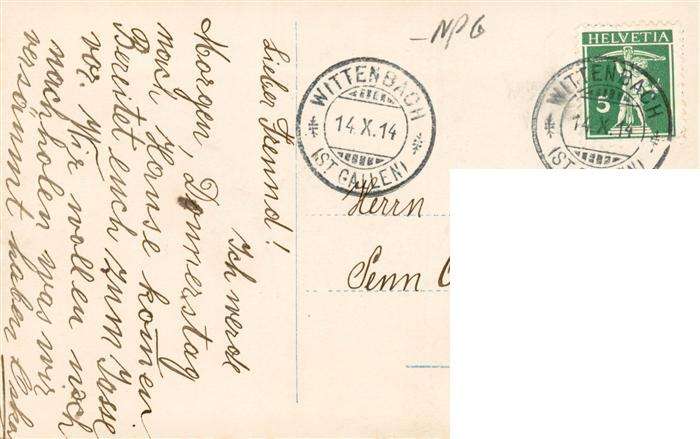 Lieber Freund!
Ich werde
Morgen, Donnerstag
nach Hause komen.
Bereitet euch zum Josse
vor. Wir wollen noch
nachholen was wir
versäumt haben
NPG
WITTENBACH
14.X.14
(ST. GALLEN)
HELVETIA
5
WITTENBACH
14.X.14
(ST. GALLEN)
Herrn
Senn